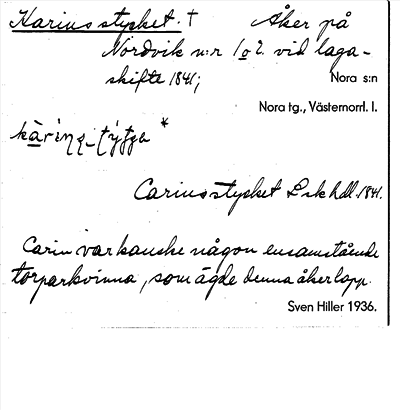 Karins stycket. † Åker på
Nordvik n:r 1 o 2 vid laga-
skifte 1841;
Nora s:n
Nora tg., Västernorrl. l.
*
Carinsstycket Lskhdl. 1841.
Carin var kanske någon ensamstående
torparkvinna, som ägde denna åkerlapp.
Sven Hiller 1936.